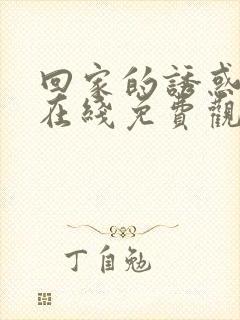 回家的誘惑
在綫免費觀
丁自勉